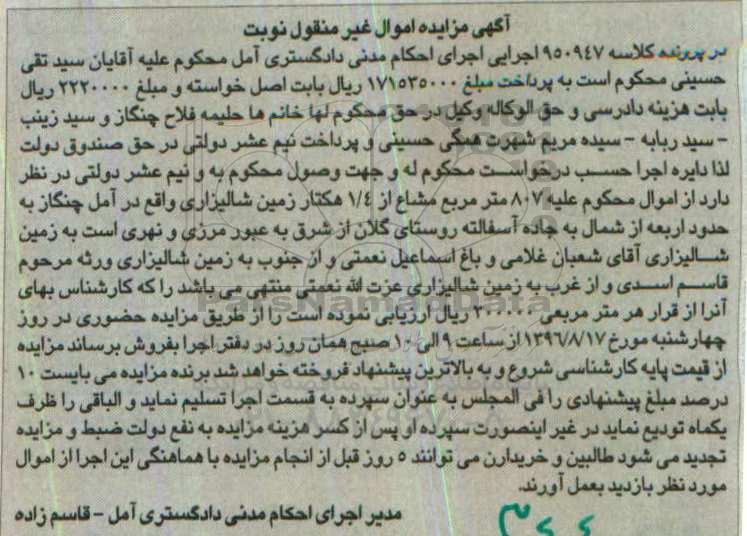 آگهی مزایده اموال غیر منقول نوبت
در پرونده کلاسه ۹۵۰۹۴۷ اجرایی اجرای احکام مدنی دادگستری آمل محکوم علیه آقایان سید تقی
حسینی محکوم است به پرداخت مبلغ ۱۷۱۵۳۵۰۰۰ ریال بابت اصل خواسته و مبلغ ۲۲۲۰۰۰۰ ریال
بابت هزینه دادرسی و حق الوکاله وکیل در حق محکوم لها خانم ها حلیمه فلاح چنگاز و سید زینب
- سید ربابه - سیده مریم شهرت همگی حسینی و پرداخت نیم عشر دولتی در حق صندوق دولت
لذا دایره اجرا حسب درخواست محکوم له و جهت وصول محکوم به و نیم عشر دولتی در نظر
دارد از اموال محکوم علیه ۸۰۷ متر مربع مشاع از ۱/۴ هکتار زمین شالیزاری واقع در آمل چنگاز به
حدود اربعه از شمال به جاده آسفالته روستای گلان از شرق به عبور مرزی و نهری است به زمین
شالیزاری آقای شعبان غلامی و باغ اسماعیل نعمتی و از جنوب به زمین شالیزاری ورثه مرحوم
قاسم اسدی و از غرب به زمین شالیزاری عزت الله نعمتی منتهی می باشد را که کارشناس بهای
آنرا از قرار هر متر مربعی ۳۰۰۰۰۰ ریال ارزیابی نموده است را از طریق مزایده حضوری در روز
چهارشنبه مورخ ۱۳۹۶/۸/۱۷ از ساعت ۹ الی ۱۰ صبح همان روز در دفتر اجرا بفروش برساند مزایده
از قیمت پایه کارشناسی شروع و به بالاترین پیشنهاد فروخته خواهد شد برنده مزایده می بایست ۱۰
درصد مبلغ پیشنهادی را فی المجلس به عنوان سپرده به قسمت اجرا تسلیم نماید و الباقی را ظرف
یکماه تودیع نماید در غیر اینصورت سپرده او پس از کسر هزینه مزایده به نفع دولت ضبط و مزایده
تجدید می شود طالبین و خریدارن می توانند ۵ روز قبل از انجام مزایده با هماهنگی این اجرا از اموال
مورد نظر بازدید بعمل آورند.
مدیر اجرای احکام مدنی دادگستری آمل - قاسم زاده
ParsNamadData